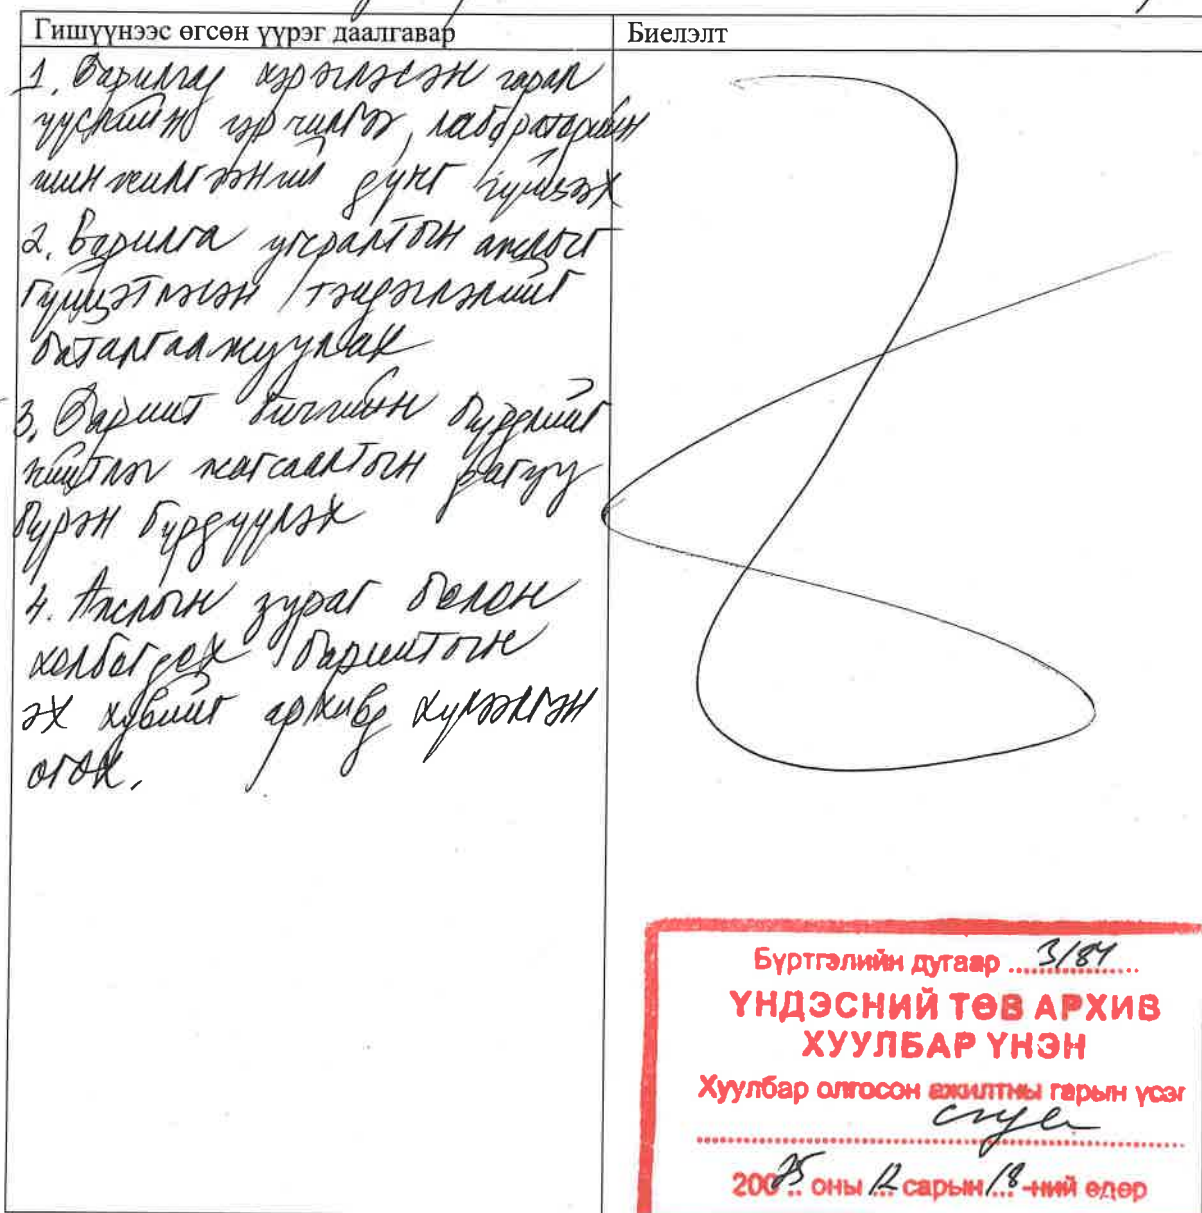 Гишүүнээс өгсөн үүрэг даалгавар
Биелэлт
1. Барилгад хэрэглэсэн гарал
үүслийн гэрчилгээ, лабораторийн
шинжилгээний дүнг гүйцээх
2. Барилга угсралтын ажлыг
гүйцэтгэсэн тэмдэглэлийг
баталгаажуулах
3. Баримт бичгийн бүрдлийг
жагсаалтын дагуу
бүрэн бүрдүүлэх
4. Ажлын зураг болон
холбогдох баримтын
эх хувийг архивд хүлээлгэн
өгөх.
Бүртгэлийн дугаар 3/84
ҮНДЭСНИЙ ТӨВ АРХИВ
ХУУЛБАР ҮНЭН
Хуулбар олгосон ажилтны гарын үсэг
200 25 оны 12 сарын 18 -ний өдөр